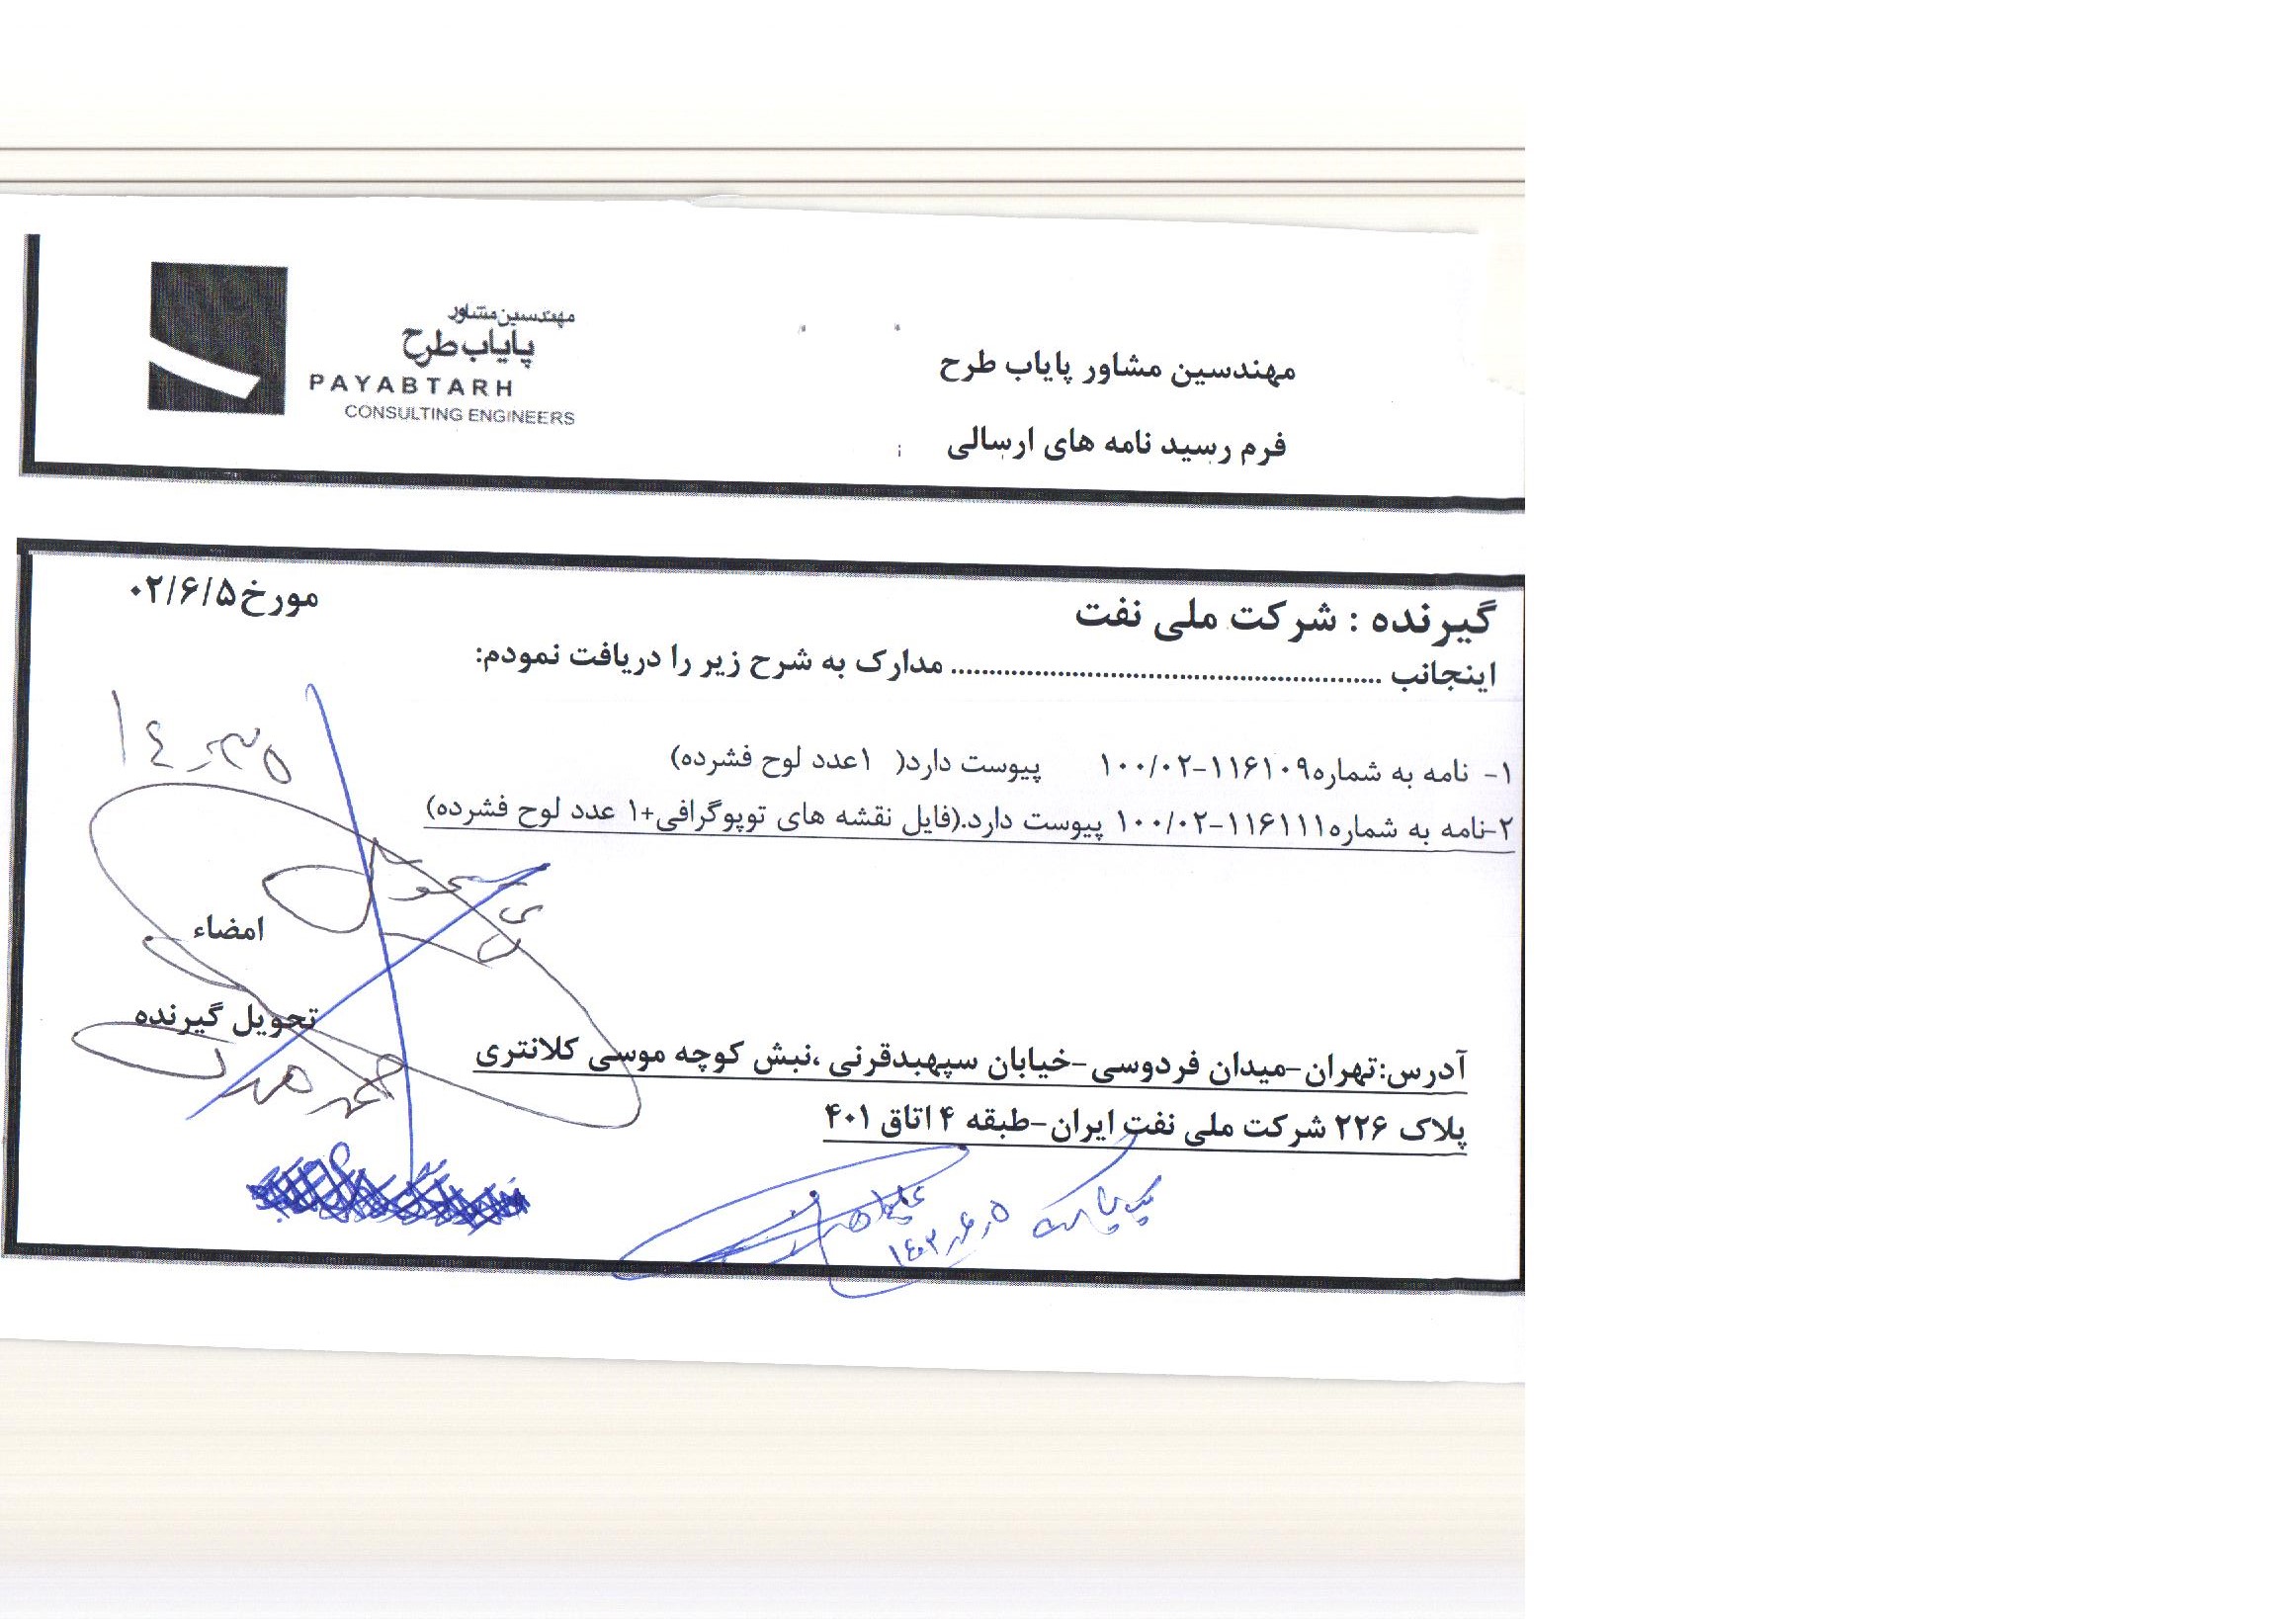 مهندسین مشاور
پایاب طرح
PAYABTARH
CONSULTING ENGINEERS
مهندسین مشاور پایاب طرح
فرم رسید نامه های ارسالی
مورخ۰۲/۶/۵
گیرنده : شرکت ملی نفت
اینجانب ........................................................ مدارک به شرح زیر را دریافت نمودم:
۱- نامه به شماره۱۱۶۱۰۹-۱۰۰/۰۲ پیوست دارد( ۱عدد لوح فشرده)
۲-نامه به شماره۱۱۶۱۱۱-۱۰۰/۰۲ پیوست دارد.(فایل نقشه های توپوگرافی+۱ عدد لوح فشرده)
امضاء
تحویل گیرنده
آدرس:تهران-میدان فردوسی-خیابان سپهبدقرنی ،نبش کوچه موسی کلانتری
پلاک ۲۲۶ شرکت ملی نفت ایران-طبقه ۴ اتاق ۴۰۱